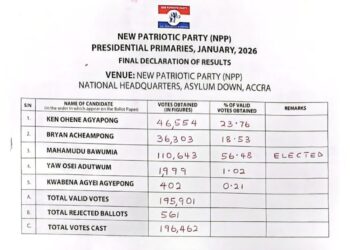 NEW PATRIOTIC PARTY (NPP)
PRESIDENTIAL PRIMARIES, JANUARY, 2026
FINAL DECLARATION OF RESULTS
VENUE: NEW PATRIOTIC PARTY (NPP)
NATIONAL HEADQUARTERS, ASYLUM DOWN, ACCRA
S/N NAME OF CANDIDATE (In the order in which appear on the Ballot Paper) VOTES OBTAINED (IN FIGURES) % OF VALID VOTES OBTAINED REMARKS
1. KEN OHENE AGYAPONG 46,554 23.76
2. BRYAN ACHEAMPONG 36,303 18.53
3. MAHAMUDU BAWUMIA 110,643 56.48 ELECTED
4. YAW OSEI ADUTWUM 1,999 1.02
5. KWABENA AGYEI AGYEPONG 402 0.21
A. TOTAL VALID VOTES 195,901
B. TOTAL REJECTED BALLOTS 561
C. TOTAL VOTES CAST 196,462